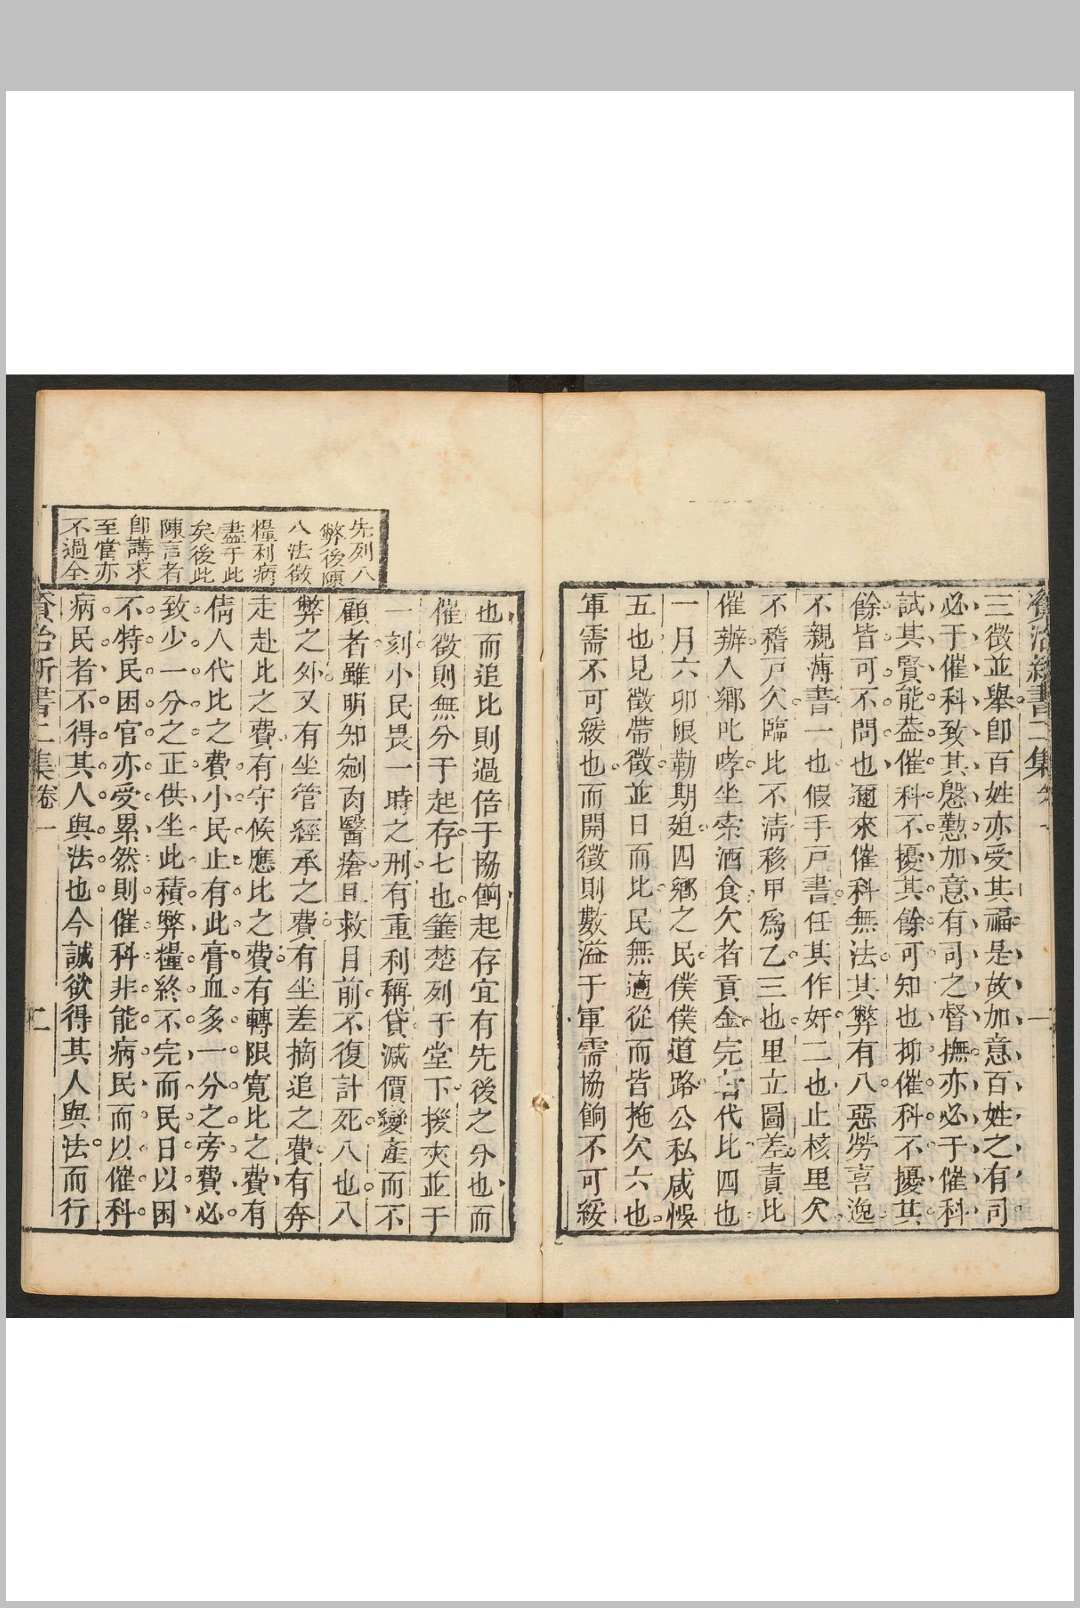 資治新書二集卷一
三徵並舉卽百姓亦受其福是故加意百姓之有司
必于催科致其慇懃加意有司之督撫亦必于催科
試其賢能葢催科不擾其餘可知也抑催科不擾其
餘皆可不問也邇來催科無法其弊有八惡勞喜逸
不親溥書一也假手戸書任其作奸二也止核里欠
不稽戸欠臨比不淸移甲爲乙三也里立圖差責比
催辦入鄉叱哮坐索酒食欠者貢金完者代比四也
一月六卯限勒期廹四鄉之民僕僕道路公私咸悞
五也見徵帶徵並日而比民無適從而皆拖欠六也
軍需不可緩也而開徵則數溢于軍需協餉不可緩
也而追比則過倍于協餉起存宜有先後之分也而
催徵則無分于起存七也箠楚列于堂下拶夾並于
一刻小民畏一時之刑有重利稱貸減價變產而不
顧者雖明知剜肉醫瘡且救目前不復計死八也八
弊之外又有坐管經承之費有坐差摘追之費有奔
走赴比之費有守候應比之費有轉限寬比之費有
倩人代比之費小民止有此膏血多一分之旁費必
致少一分之正供坐此積弊糧終不完而民日以困
不特民困官亦受累然則催科非能病民而以催科
病民者不得其人與法也今誠欲得其人與法而行
先列八
弊後陳
八法徵
糧利病
盡于此
矣後此
陳言者
卽講求
至當亦
不過全
資治新書二集卷一
二